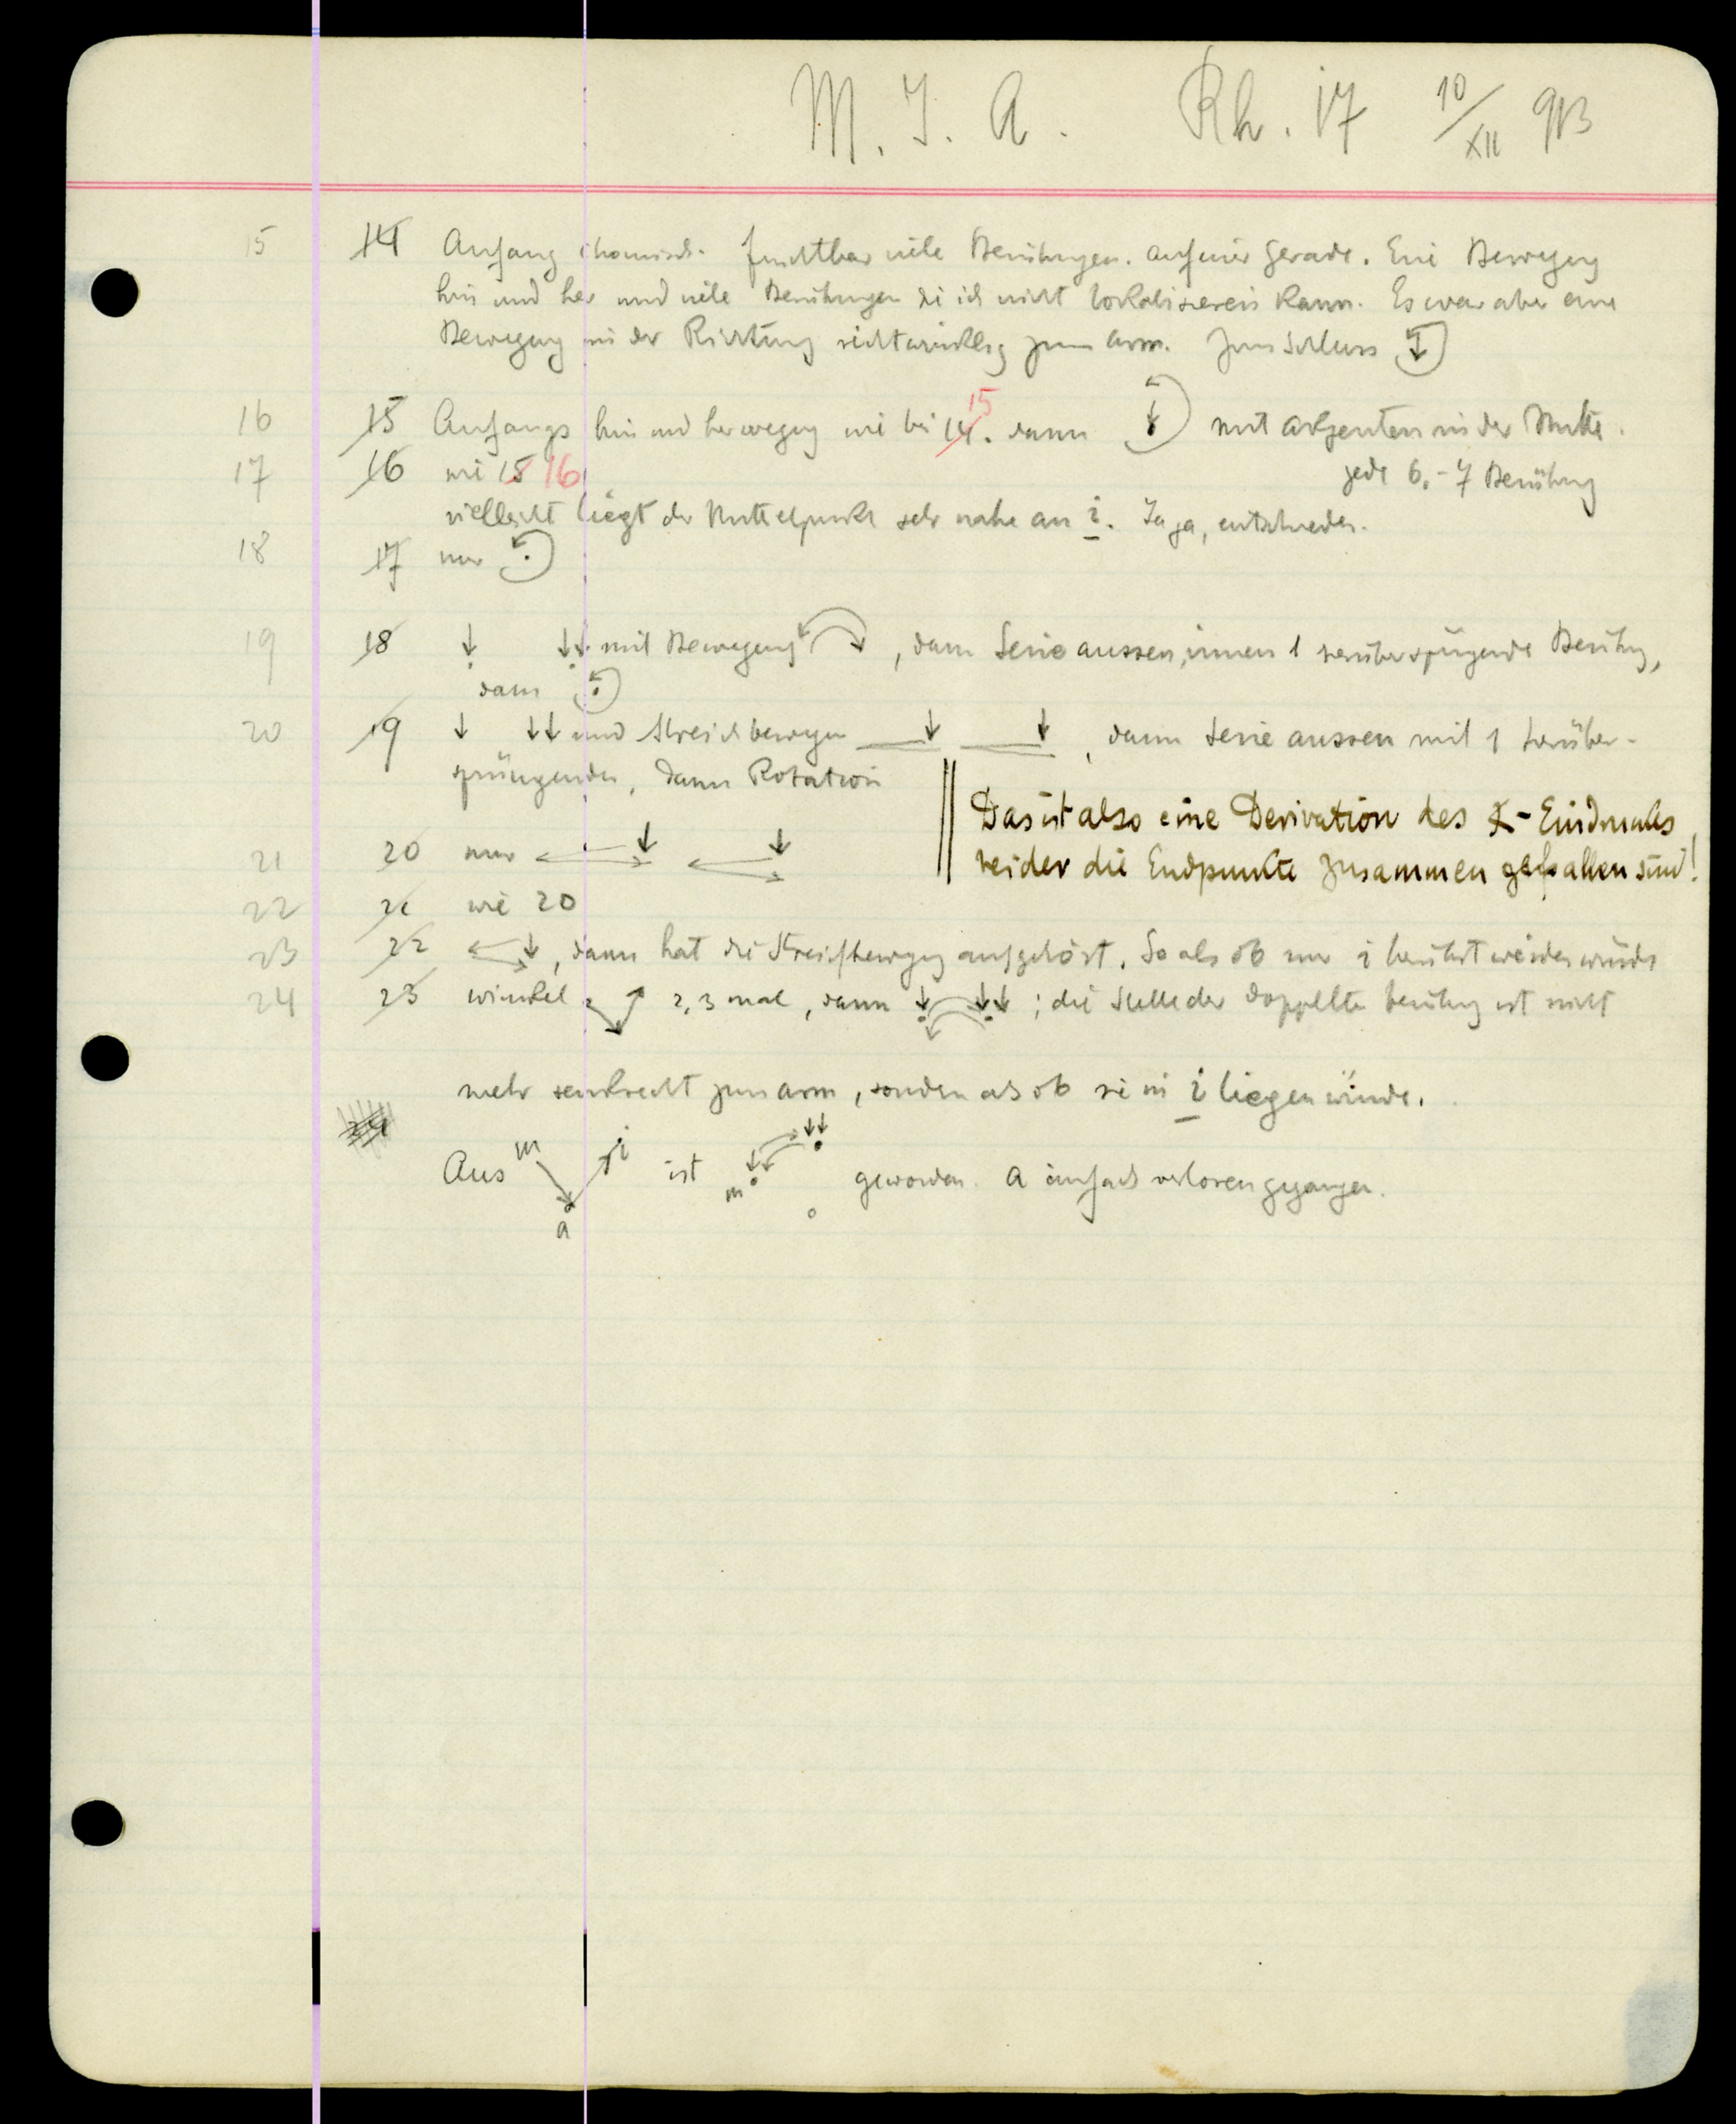 M. I. A. Rh. 17 10/XII 913
15 14 Anfang chaotisch. furchtbar viele Berührungen. auf einer Gerade. Eine Bewegung
hin und her und viele Berührungen die ich nicht lokalisieren kann. Es war aber eine
Bewegung in der Richtung rechtwinklig zum Arm. Zum Schluss ↓
16 15 Anfangs hin und herwegung wie bei 14. 15 dann ↓ mit Akzenten in der Mitte.
17 16 wie 15 16 jede 6.-7 Berührung
vielleicht liegt der Mittelpunkt sehr nahe an i. Ja ja, entschieden.
18 17 nur
19 18 ↓ ↓↓ mit Bewegung , dann Serie aussen, innen 1 herüberspringende Berührg,
dann
20 19 ↓ ↓↓ und Streichbewegen ↓ ↓ , dann Serie aussen mit 1 herüber-
springenden, dann Rotation
Das ist also eine Derivation des -Eindrucks,
bei der die Endpunkte zusammen gefallen sind!
21 20 nur ↓ ↓
22 21 wie 20
23 22 ↓, dann hat die Streichbewegg aufgehört. So als ob nur i berührt werden würde
24 23 Winkel 2, 3 mal, dann ↓ ↓↓ ; die Stelle der doppelten Berührg ist nicht
mehr senkrecht zum Arm, sondern als ob sie in i liegen würde.
Aus m a i ist m geworden. A einfach verloren gegangen.